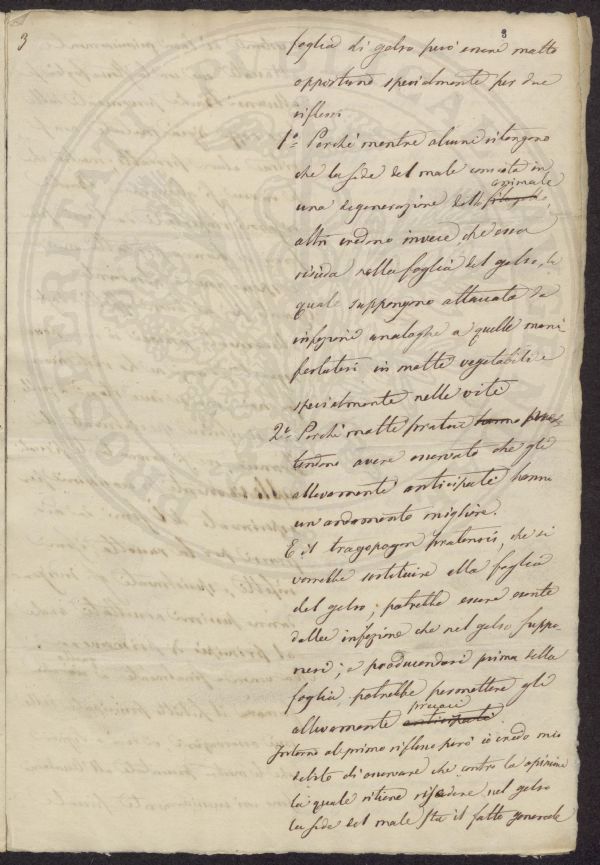 3
8
foglia di gelso però essere molto
opportuno specialmente per due
riflessi
1.° Perché mentre alcuni ritengono
che la sede del male consista in
una degenerazione dell' animale
altri credono invece, che essa
risieda nella foglia del gelso, la
quale suppongono attaccata da
infezioni analoghe a quelle mani
festatesi in molti vegetabili e
specialmente nelle viti
2.° Perché molti pratici hanno
tendono avere osservato che gli
allevamenti anticipati hanno
un andamento migliore.
E il tragopogon pratensis, che si
vorrebbe sostituire alla foglia
del gelso, potrebbe essere esente
dalle infezioni che nel gelso suppo
nesi; e producendosi prima della
foglia, potrebbe permettere gli
allevamenti anticipati precoci
Intorno al primo riflesso però io credo mio
debito di osservare che contro la opinione
la quale ritiene risiedere nel gelso
la sede del male sta il fatto generale